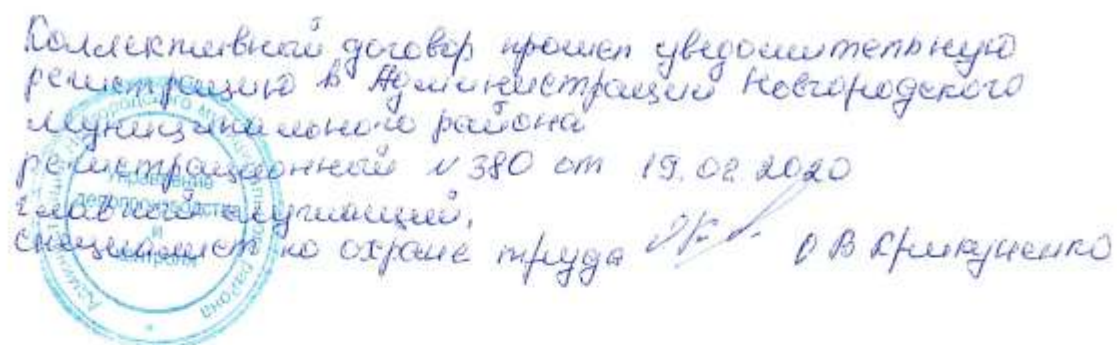 Коллективный договор прошел уведомительную
регистрацию в Администрации Новгородского
муниципального района
регистрационный N 380 от 19.02.2020
главный служащий,
специалист по охране труда О В Крикуненко
Управление
делопроизводства
и
контроля